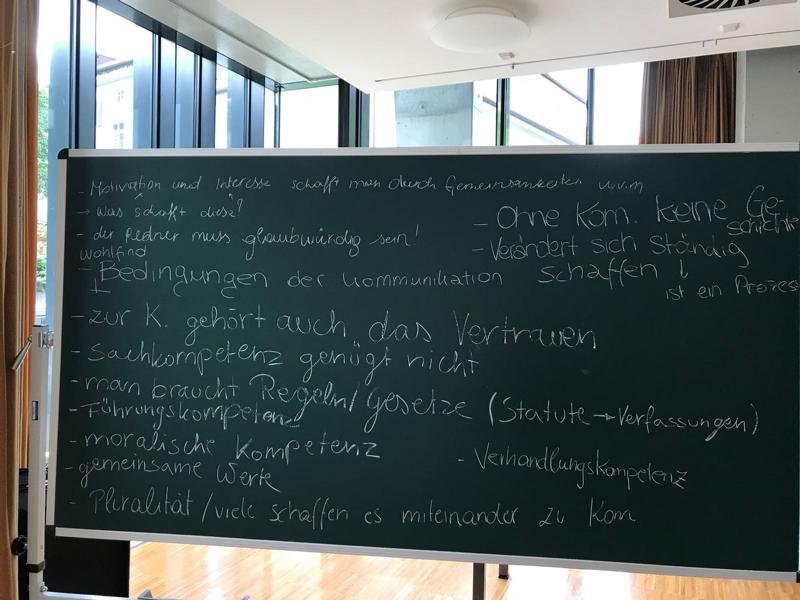 - Motivation und Interesse schafft man durch Gemeinsamkeiten uvm
→ was schafft diese?
- der Redner muss glaubwürdig sein!
wohlfind
- Bedingungen der Kommunikation schaffen
- Ohne Kom. keine Geschichte
- Verändert sich ständig
↓
ist ein Prozess
- zur K. gehört auch das Vertrauen
- Sachkompetenz genügt nicht
- man braucht Regeln/Gesetze (Statute → Verfassungen)
- Führungskompetenz
- moralische Kompetenz
- Verhandlungskompetenz
- gemeinsame Werte
- Pluralität / viele schaffen es miteinander zu Kom